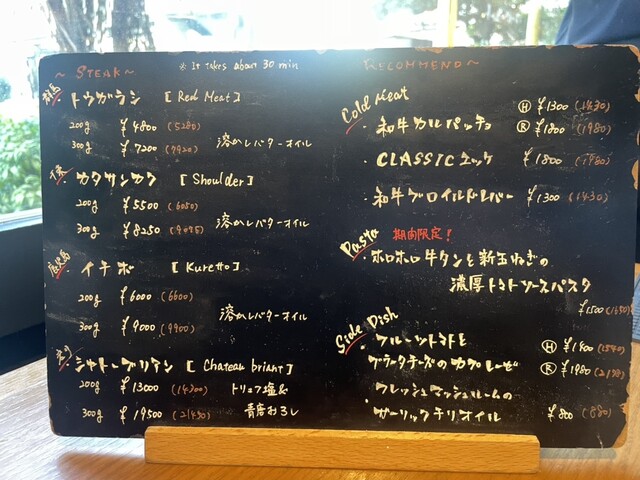 ~ STEAK ~
※ It takes about 30 min
トウガラシ [Red Meat]
200g ¥4800 (5280)
300g ¥7200 (7920) 溶かしバターオイル
カタサンカク [Shoulder]
200g ¥5500 (6050)
300g ¥8250 (9075) 溶かしバターオイル
鹿児島
イチボ [Kuretto]
200g ¥6000 (6600)
300g ¥9000 (9900) 溶かしバターオイル
シャトーブリアン [Chateau briant]
200g ¥13000 (14300) トリュフ塩&
300g ¥19500 (21450) 青唐おろし
RECOMMEND ~
Cold Meat
・和牛カルパッチョ Ⓗ ¥1300 (1430)
Ⓡ ¥1800 (1980)
・CLASSIC ユッケ ¥1800 (1980)
・和牛グロイルドレバー ¥1300 (1430)
Pasta 期間限定!
・ホロホロ牛タンと新玉ねぎの
濃厚トマトソースパスタ
¥1500 (1650)
Side Dish
・フルーツトマトと Ⓗ ¥1400 (1540)
ブラータチーズのカプレーゼ Ⓡ ¥1980 (2178)
・フレッシュマッシュルームの
ガーリックチリオイル ¥800 (880)